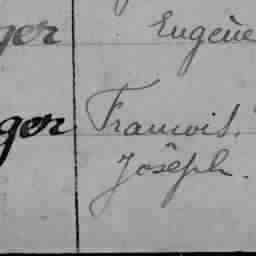 ger Eugène
ger François.
Joseph.